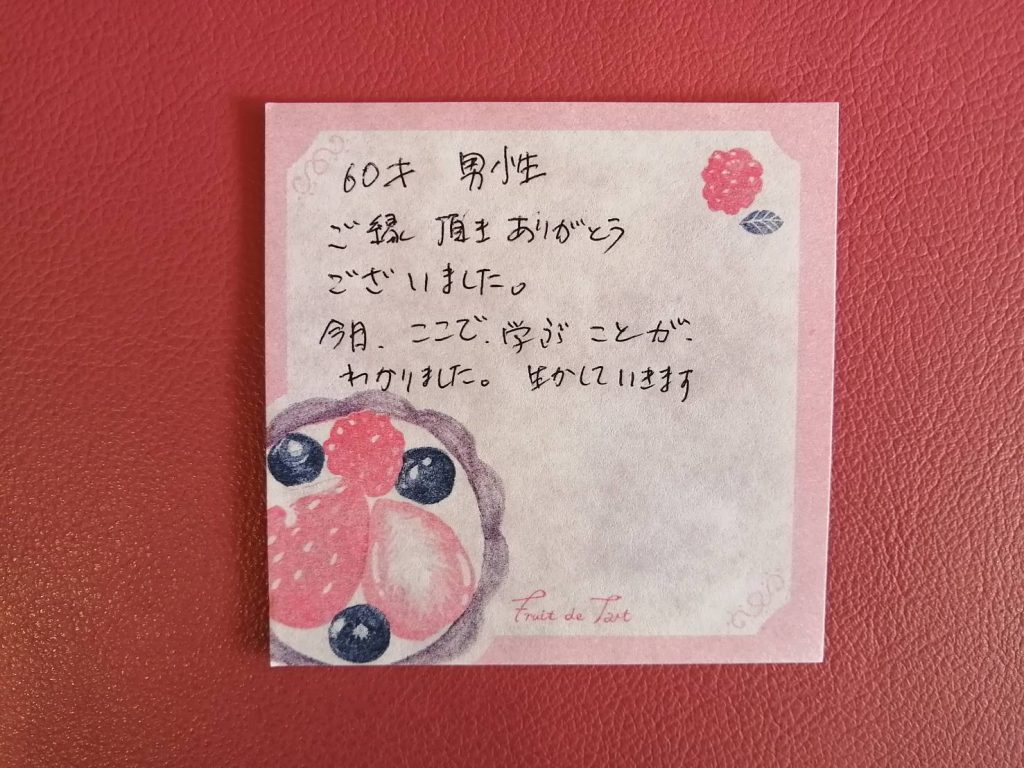 60才 男性
ご縁 頂き ありがとう
ございました。
今日、ここで、学ぶ ことが、
わかりました。 生かしていきます
Fruit de Tart